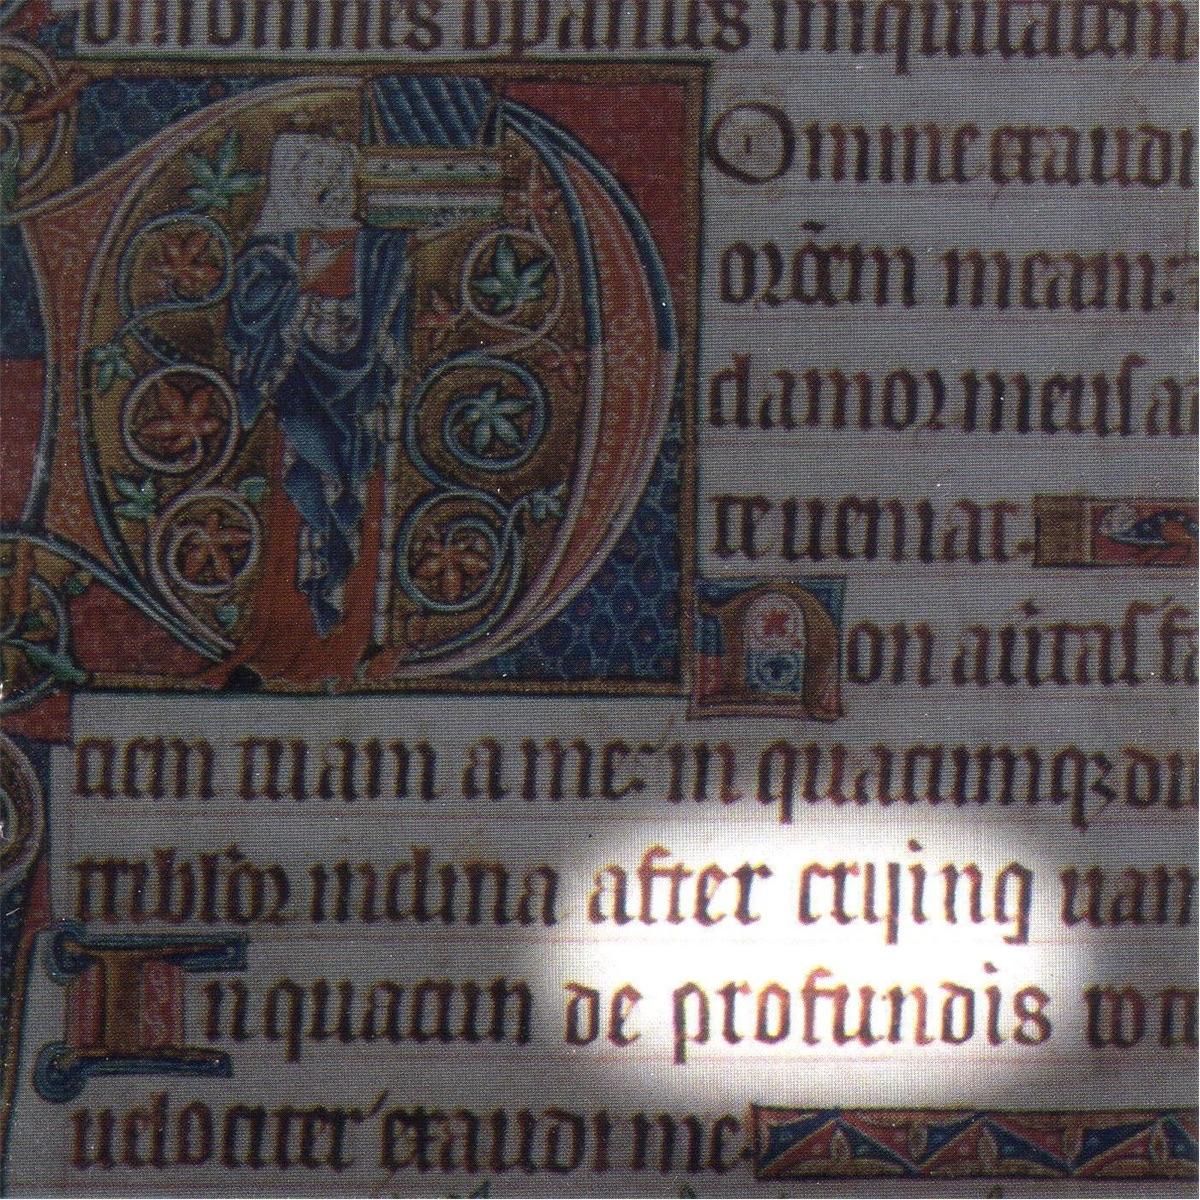 omomnes opantes iniquitatem
Omine exaudi
orõem meam:
clamor meus a
te ueniat.
Non auertas fa
ciem tuam a me: in quacumqꝫ di
tribulor inclina after crying uam
In quacun de profundis
uelociter exaudi me.